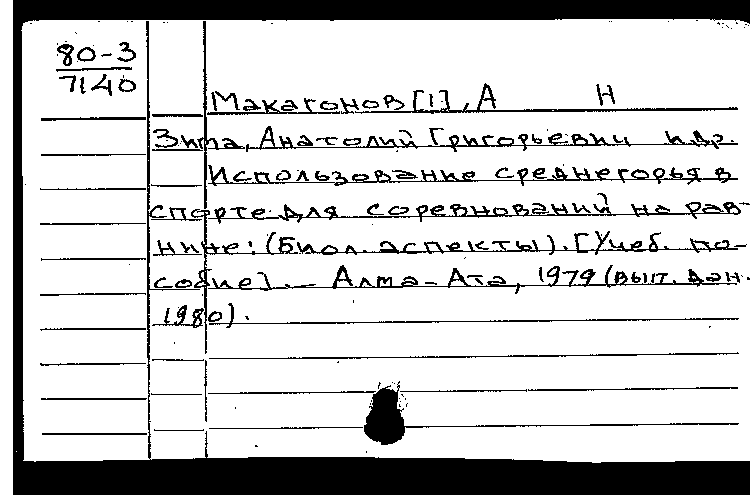 80-3
7140
Макагонов [1], А Н
Зима, Анатолий Григорьевич и др.
Использование среднегорья в
спорте для соревнований на рав-
нине: (Биол. аспекты). [Учеб. по-
собие]. — Алма-Ата, 1979 (вып. дан.
1980).